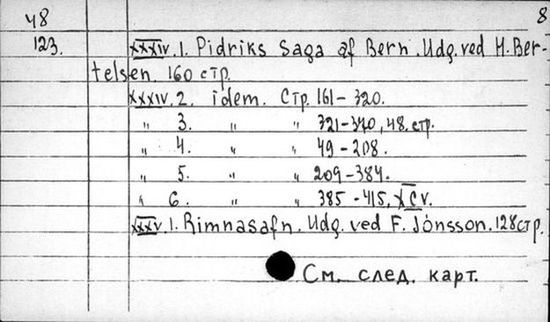 48 8
123. XXXIV. 1. Pidriks Saga af Bern. Udg. ved H. Ber-
telsen. 160 стр.
XXXIV. 2. idem. Стр. 161-320.
„ 3. „ „ 321-370, 48. стр.
„ 4. „ „ 49-208.
„ 5. „ „ 209-384.
„ 6. „ „ 385-415, XCV.
XXXV. 1. Rimnasafn. Udg. ved F. Jónsson. 128 стр.
См. след. карт.